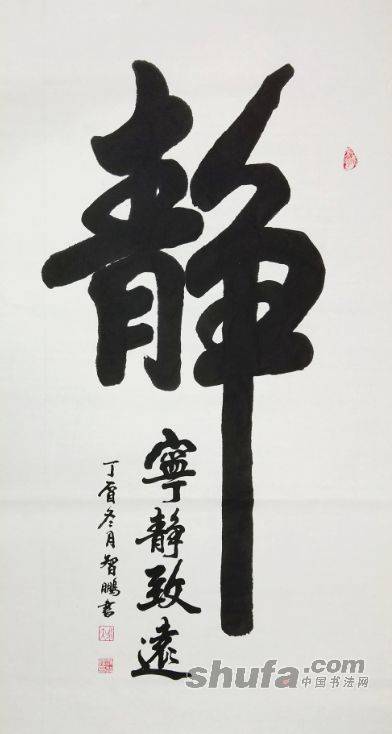 静
寧静致遠
丁酉冬月智鹏书
shufa.com
中国书法网